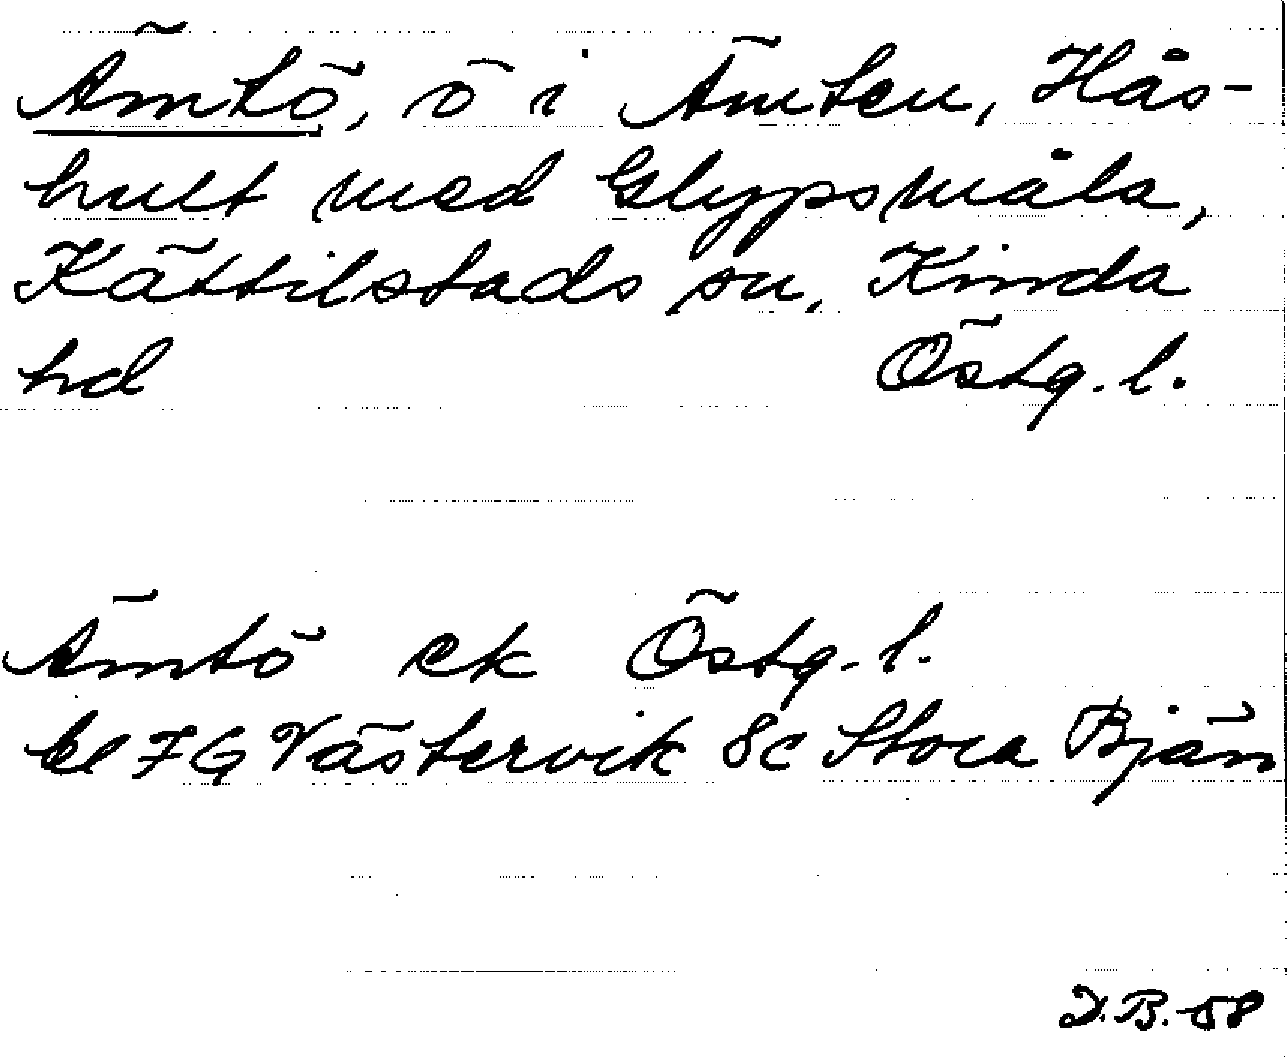 Ämtö, ö i Ämten, Hås-
hult med Glypsmåla,
Kättilstads sn, Kinda
hd Östg. l.
Ämtö ek Östg. l.
bl FG Västervik 8c Stora Bjän
D.B.-58